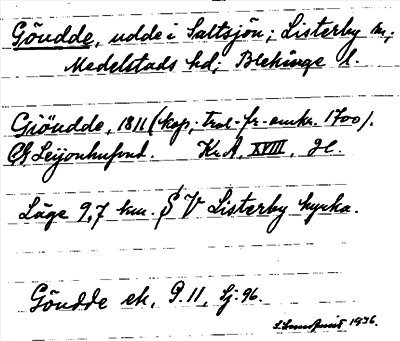 Göudde, udde i Saltsjön; Listerby sn;
Medelstads hd; Blekinge l.
Giöudde, 1811 (kop, trol. fr. omkr. 1700).
Leijonhufvud. KrA, XVIII,
Läge 9,7 km. S V Listerby kyrka.
Göudde ek, 9.11, Sj. 96.
1936.